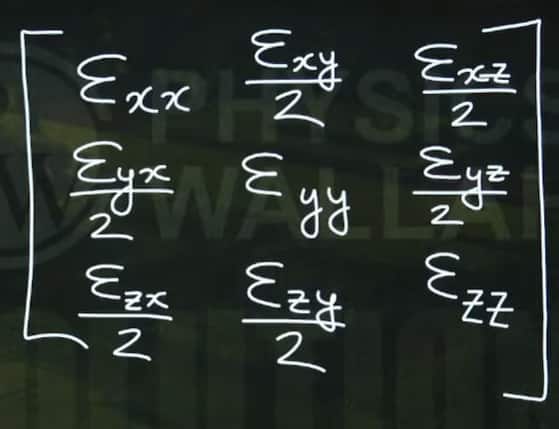 [ εxx εxy/2 εxz/2
εyx/2 εyy εyz/2
εzx/2 εzy/2 εzz ]
PHYSICS
WALLAH